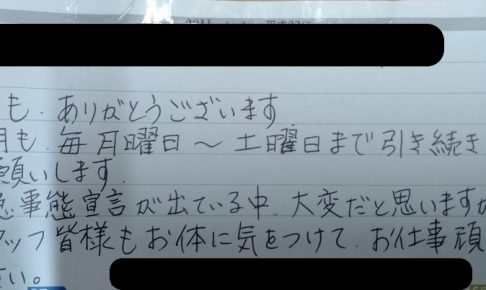 も、ありがとうございます
月も、毎月曜日〜土曜日まで引き続き
願いします.
急事態宣言が出ている中、大変だと思いますが
タッフ皆様もお体に気をつけて、お仕事頑
さい。